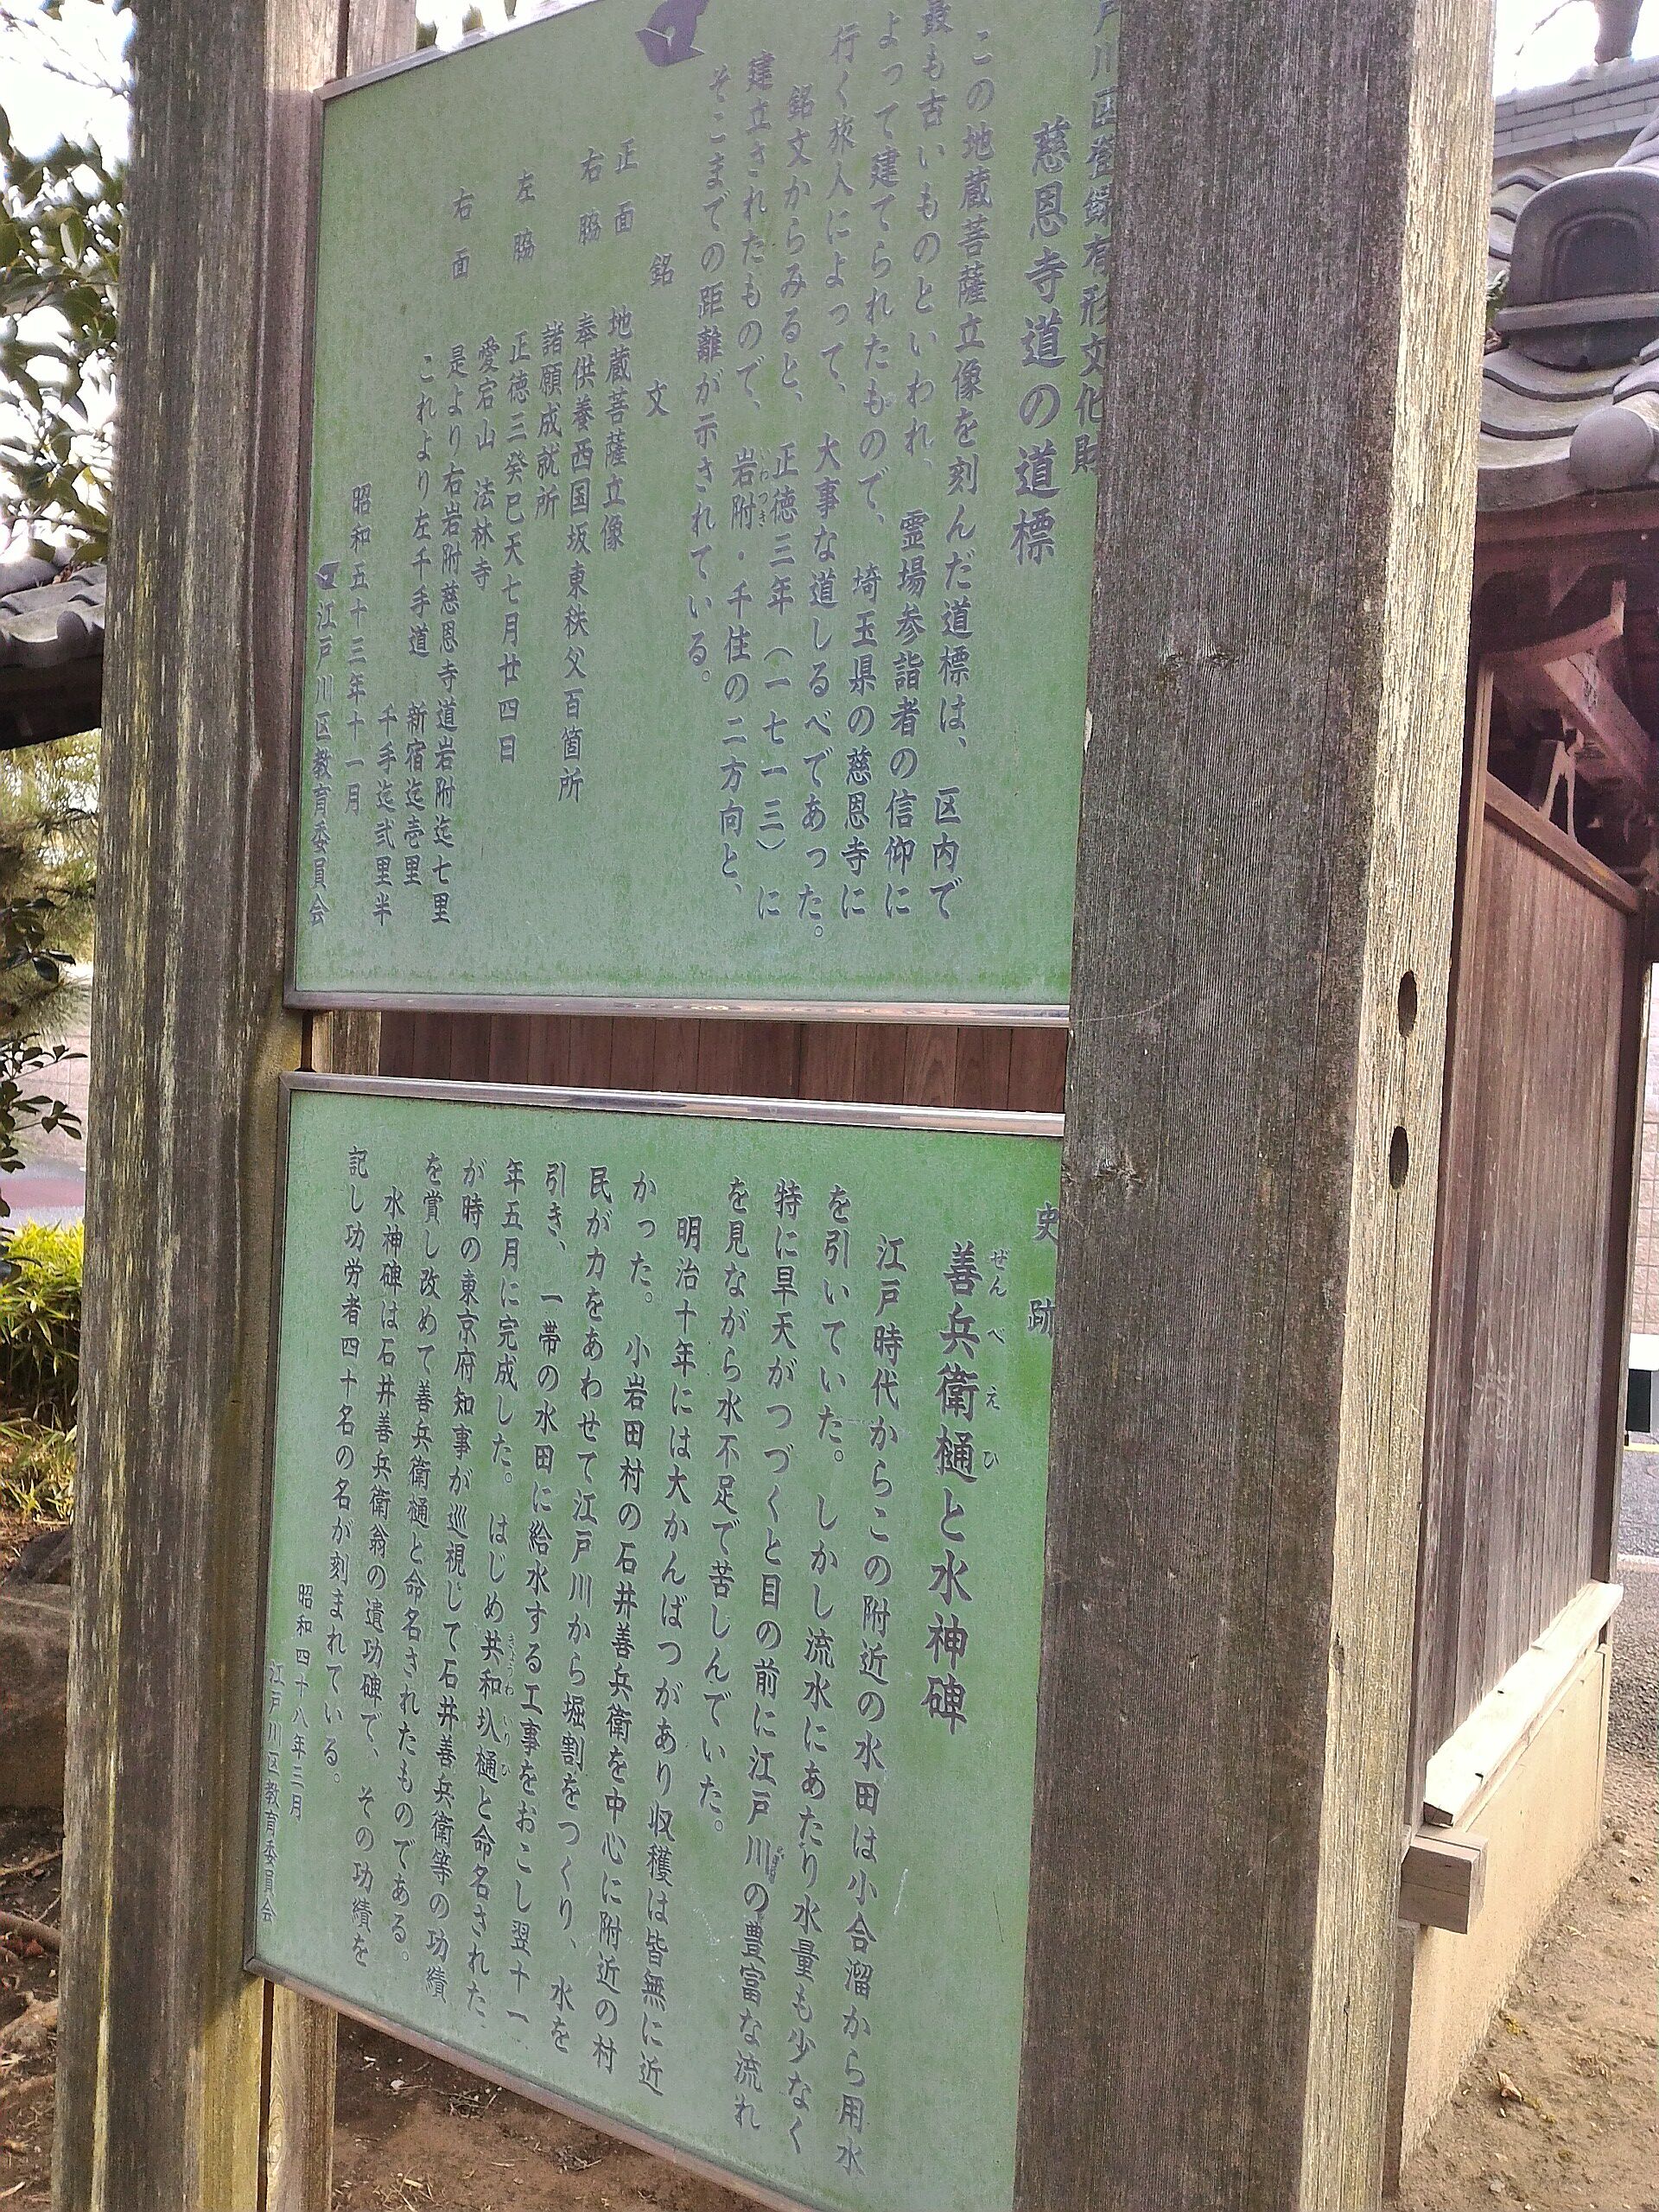 戸川区登録有形文化財
慈恩寺道の道標
この地蔵菩薩立像を刻んだ道標は、区内で
最も古いものといわれ、霊場参詣者の信仰に
よって建てられたもので、埼玉県の慈恩寺に
行く旅人によって、大事な道しるべであった。
銘文からみると、正徳三年（一七一三）に
建立されたもので、岩附・千住の二方向と、
いわつき
そこまでの距離が示されている。
銘文
正面 地蔵菩薩立像
右脇 奉供養西国坂東秩父百箇所
諸願成就所
左脇 正徳三癸巳天七月廿四日
愛宕山 法林寺
右面 是より右岩附慈恩寺道岩附迄七里
これより左千手道 新宿迄壱里
千手迄弐里半
昭和五十三年十一月
江戸川区教育委員会
史跡
善兵衛樋と水神碑
ぜんべえひ
江戸時代からこの附近の水田は小合溜から用水
を引いていた。しかし流水にあたり水量も少なく
特に旱天がつづくと目の前に江戸川の豊富な流れ
を見ながら水不足で苦しんでいた。
明治十年には大かんばつがあり収穫は皆無に近
かった。小岩田村の石井善兵衛を中心に附近の村
民が力をあわせて江戸川から堀割をつくり、水を
引き、一帯の水田に給水する工事をおこし翌十一
年五月に完成した。はじめ共和圦樋と命名された
きょうわいりひ
が時の東京府知事が巡視して石井善兵衛等の功績
を賞し改めて善兵衛樋と命名されたものである。
水神碑は石井善兵衛翁の遺功碑で、その功績を
記し功労者四十名の名が刻まれている。
昭和四十八年三月
江戸川区教育委員会